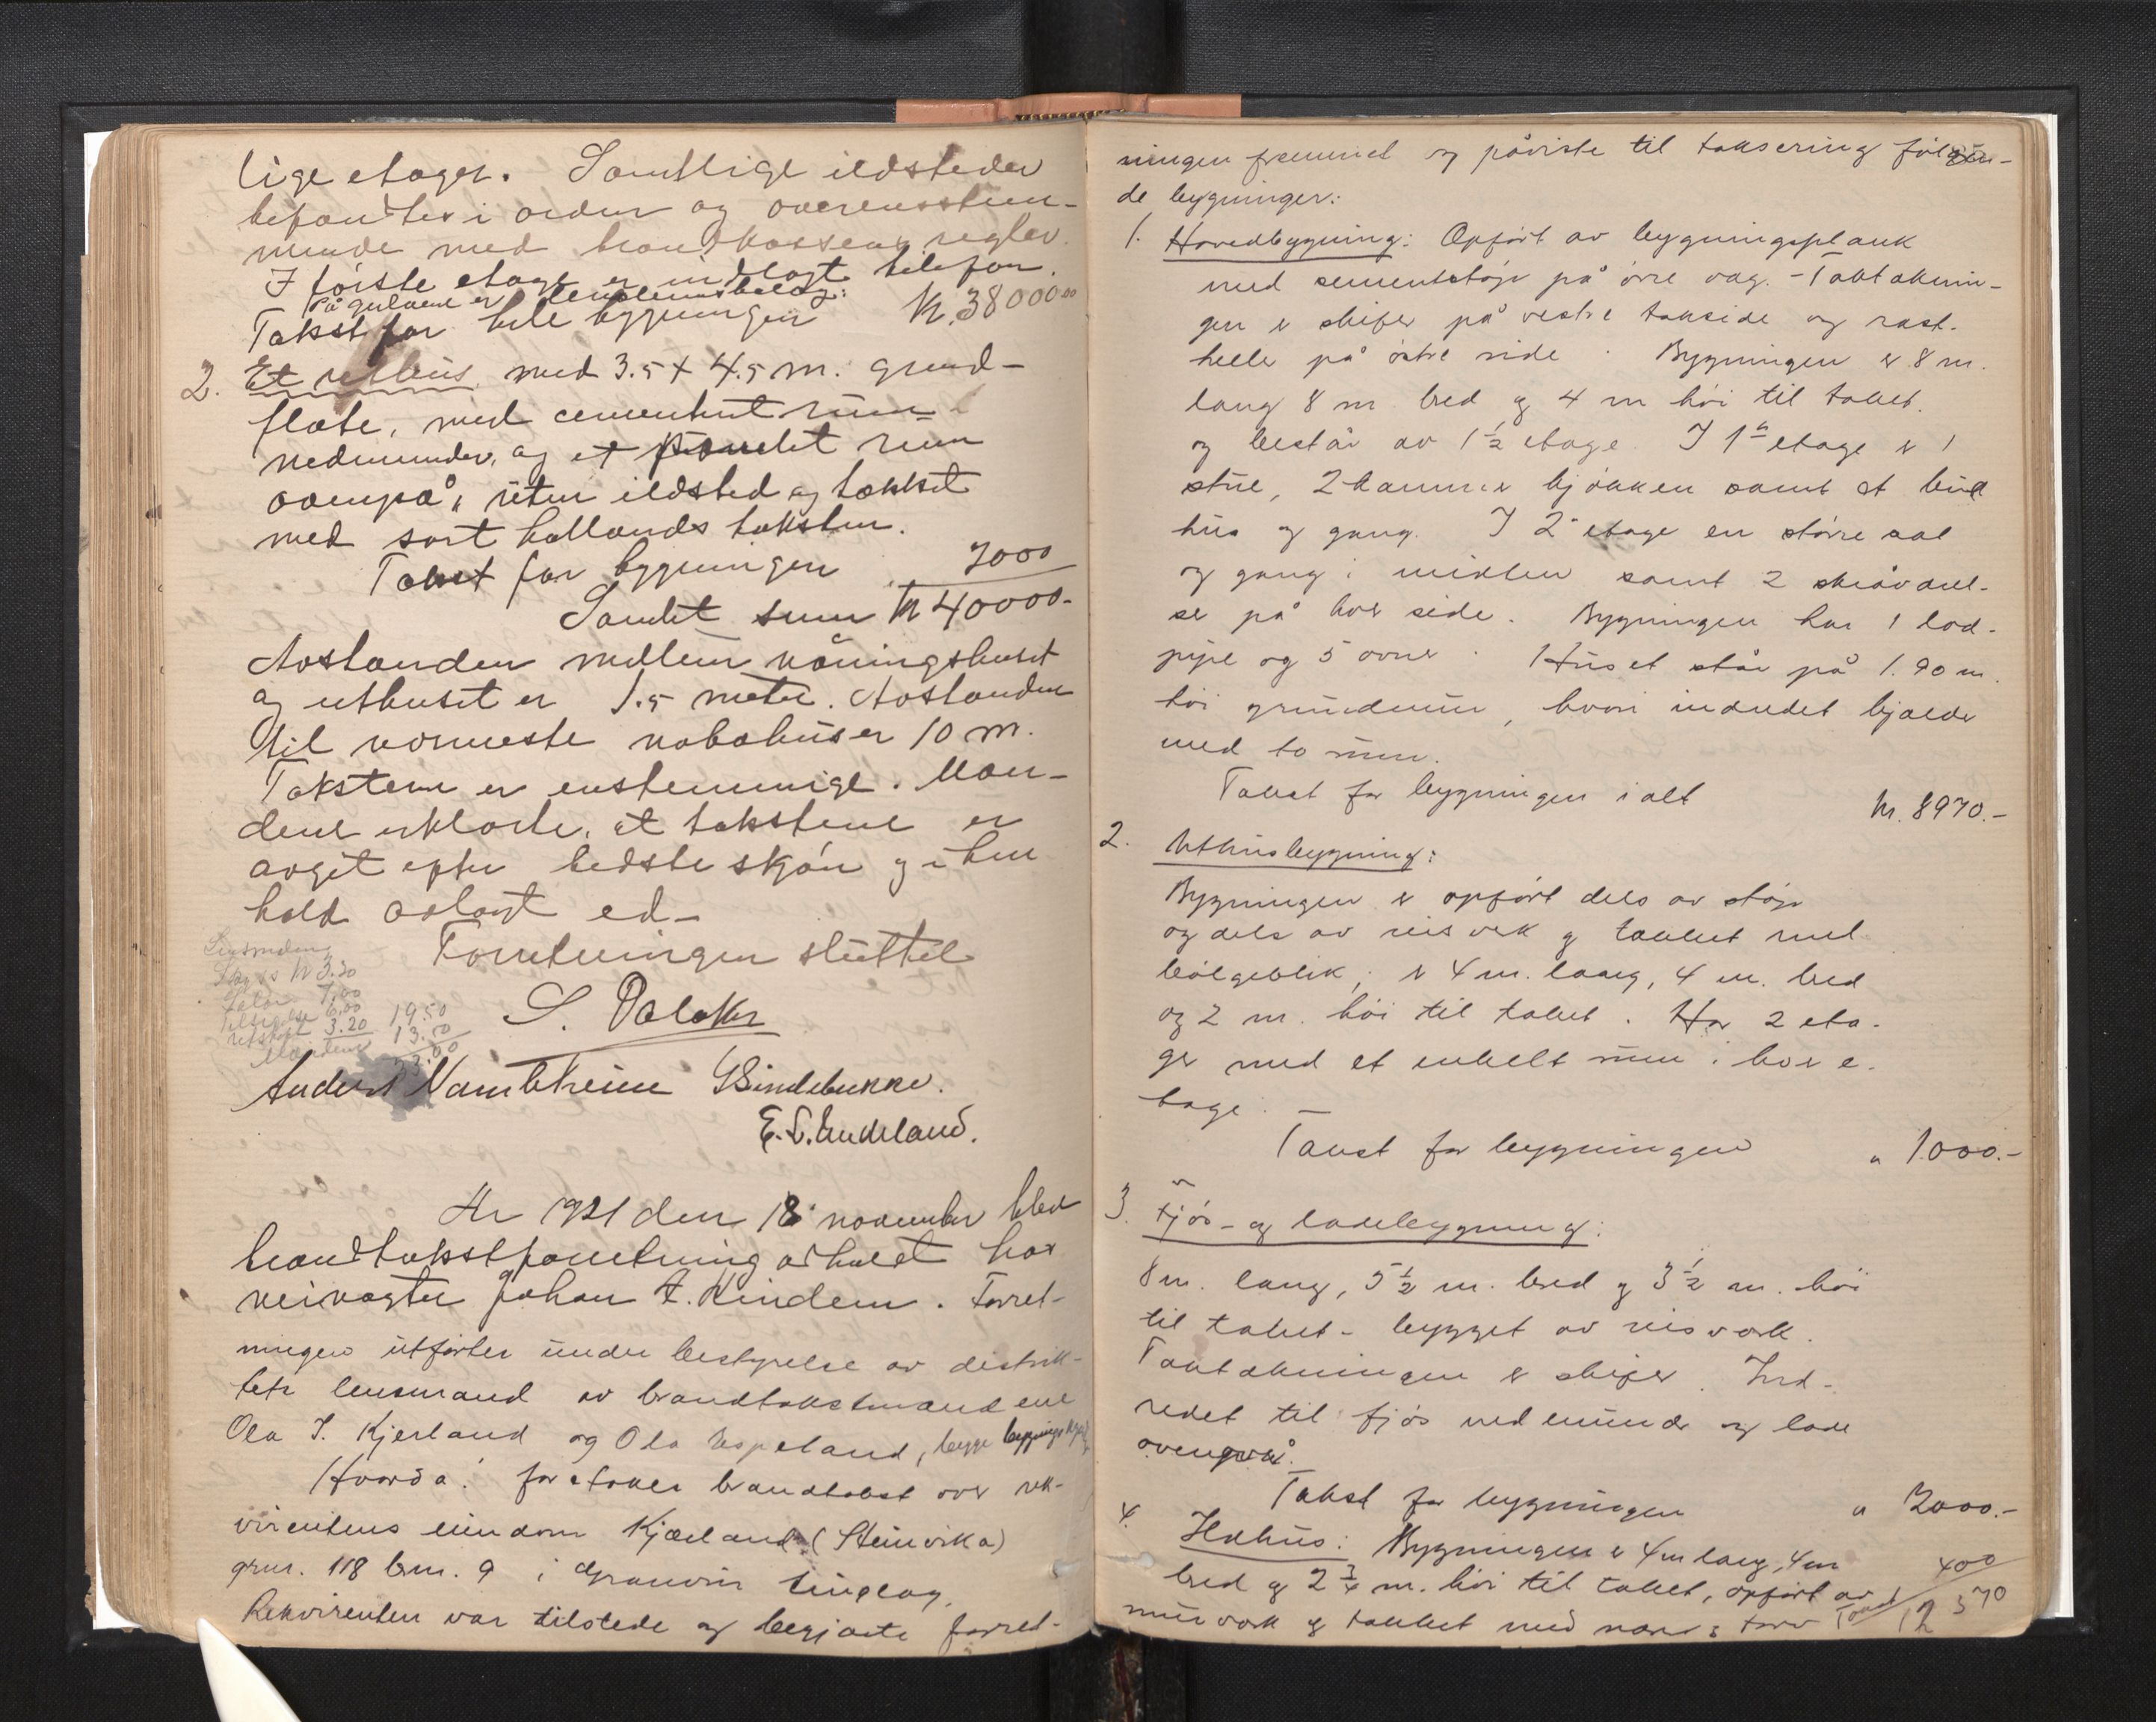 lige etager. Samtlige ildsteder
befandtes i orden og overensstem-
mende med brandkassens regler.
I første etage er indlagt telefon.
På gulvene er linoleumsbelæg:
Takst for hele bygningen Kr. 38000.00
2. Et uthus med 3.5 x 4.5 m. grund-
flate, med cementert rum
nedenunder, og et panelet rum
ovenpå, uten ildsted og tækket
med sort hollandsk taksten.
Takst for bygningen 2000
Samlet sum Kr 40000-
Avstanden mellem våningshuset
og uthuset er 1.5 meter. Avstanden
til nærmeste nabohus er 10 m.
Taksterne er enstemmige. Mæn-
dene erklærte, at takstene er
avgit efter bedste skjøn og i hen
hold avlagt ed-
Forretningen sluttet
Lensmanden
Skyss Kr 3.30
7.00
6.00 19.50
3.20 13.50
Mændene 33.00
Anders Nambtveim
E. L. Endeland.
År 1921 den 18 november blev
brandtakstforretning avholdt hos
veivogter Johan A. Kindem. Forret-
ningen utførtes under bestyrelse av distrik-
tets lensmand av brandtakstmændene
Ola I. Kjerland og Ola Espeland, begge bygningskyndige
Hvorda: foretokes brandtakst over rek-
virentens eiendom Kjærland (Steinvika)
grnr. 118 brn. 9 i Granvin tinglag.
Rekvirenten var tilstede og begjærte forret-
ningen fremmet og påviste til taksering følgen-
de bygninger:
1. Hovedbygning: Opført av bygningsplank
med sementstøp på øvre væg. - Taktæknin-
gen er skifer på vestre takside og rast-
helle på østre side. Bygningen er 8 m.
lang 8 m bred og 4 m høi til taket.
og består av 1½ etage. I 1ste etage er 1
stue, 2 kammer kjøkken samt et bu
hus og gang. I 2. etage en større sal
og gang i midten samt 2 skråvæel-
ser på hver side. Bygningen har 1 lod-
pipe og 5 ovner. Huset står på 1.90 m.
høi grundmur, hvori indredet kjælder
med to rum.
Takst for bygningen ialt Kr. 8970.-
2. Uthusbygning:
Bygningen er opført dels av støp
og dels av reisverk og tækket med
bølgeblik, er 4 m. lang, 4 m. bred
og 2 m. høi til taket. Har 2 eta-
ger med et enkelt rum i hver e-
tage. -
Takst for bygningen " 1000.-
3. Fjøs- og ladebygning:
8 m. lang, 5½ m. bred og 3½ m. høi
til taket - bygget av reisverk.
Taktækningen er skifer. Ind-
redet til fjøs nedenunder og lade
ovenpå.
Takst for bygningen " 2000.-
4. Ildhus: Bygningen er 4 m lang, 4 m
bred og 2¾ m. høi til taket, opført av 400
murverk og tækket med næver & torv Takst 12370